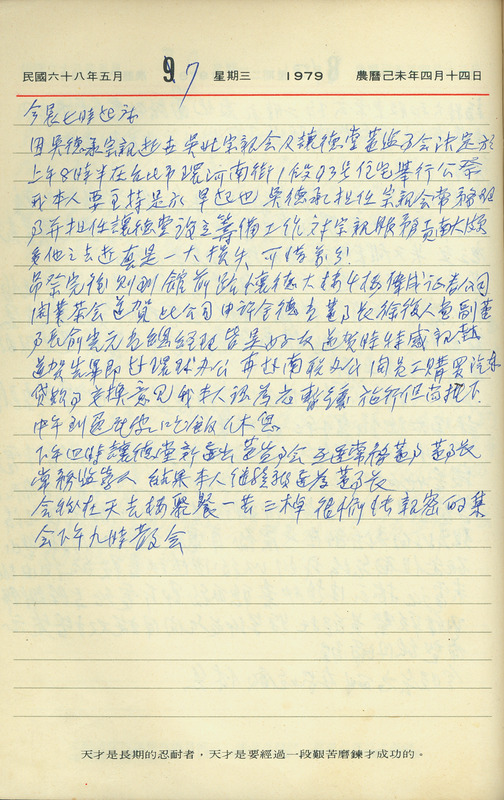 民國六十八年五月 9 7 星期三 1979 農曆己未年四月十四日
今晨七時起床
因吳德承宗親逝世吳姓宗親會及讓德堂董監事會決定於
上午8時半在台北市環河南街 段93號住宅舉行公祭
我本人要主持是於早起也 吳德承担任宗親會常務理
事并担任讓德堂設立籌備工作対宗親服務貢献大
他之去逝真是一大損失 可惜
吊祭完後則到館前路懷德大樓七樓 成証券公司
開業茶会道賀 此公司由許金德為董事長徐後人 副董
事長俞 為總經理皆是好友道賀時 感親 
道賀完畢即赴環球办公 再赴南聯办公 同員工購買汽車
貸款事交換意見我本人認為 施行但 
中午到 吃飯休息
下午四時讓德堂新選出董監事会互選常務董事 董事長
常務監察人 結果本人 被選為董事長
会後在天去樓聚餐一共三棹很愉快親密的集
会下午九時散会
天才是長期的忍耐者，天才是要經過一段艱苦磨鍊才成功的。